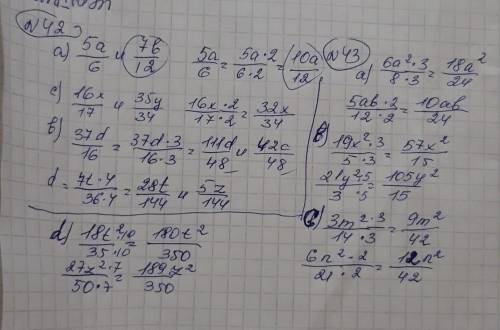 №42
a) 5a/6 и 7b/12 5a/6 = 5a·2/6·2 = 10a/12
c) 16x/17 и 35y/34 16x·2/17·2 = 32x/34
b) 37d/16 = 37d·3/16·3 = 111d/48 и 42c/48
d = 7t·4/36·4 = 28t/144 и 5z/144
d) 18t²·10/35·10 = 180t²/350
27z²·7/50·7 = 189z²/350
№43
a) 6a²·3/8·3 = 18a²/24
5ab·2/12·2 = 10ab/24
b) 19x²·3/5·3 = 57x²/15
21y²·5/3·5 = 105y²/15
c) 3m²·3/14·3 = 9m²/42
6n²·2/21·2 = 12n²/42